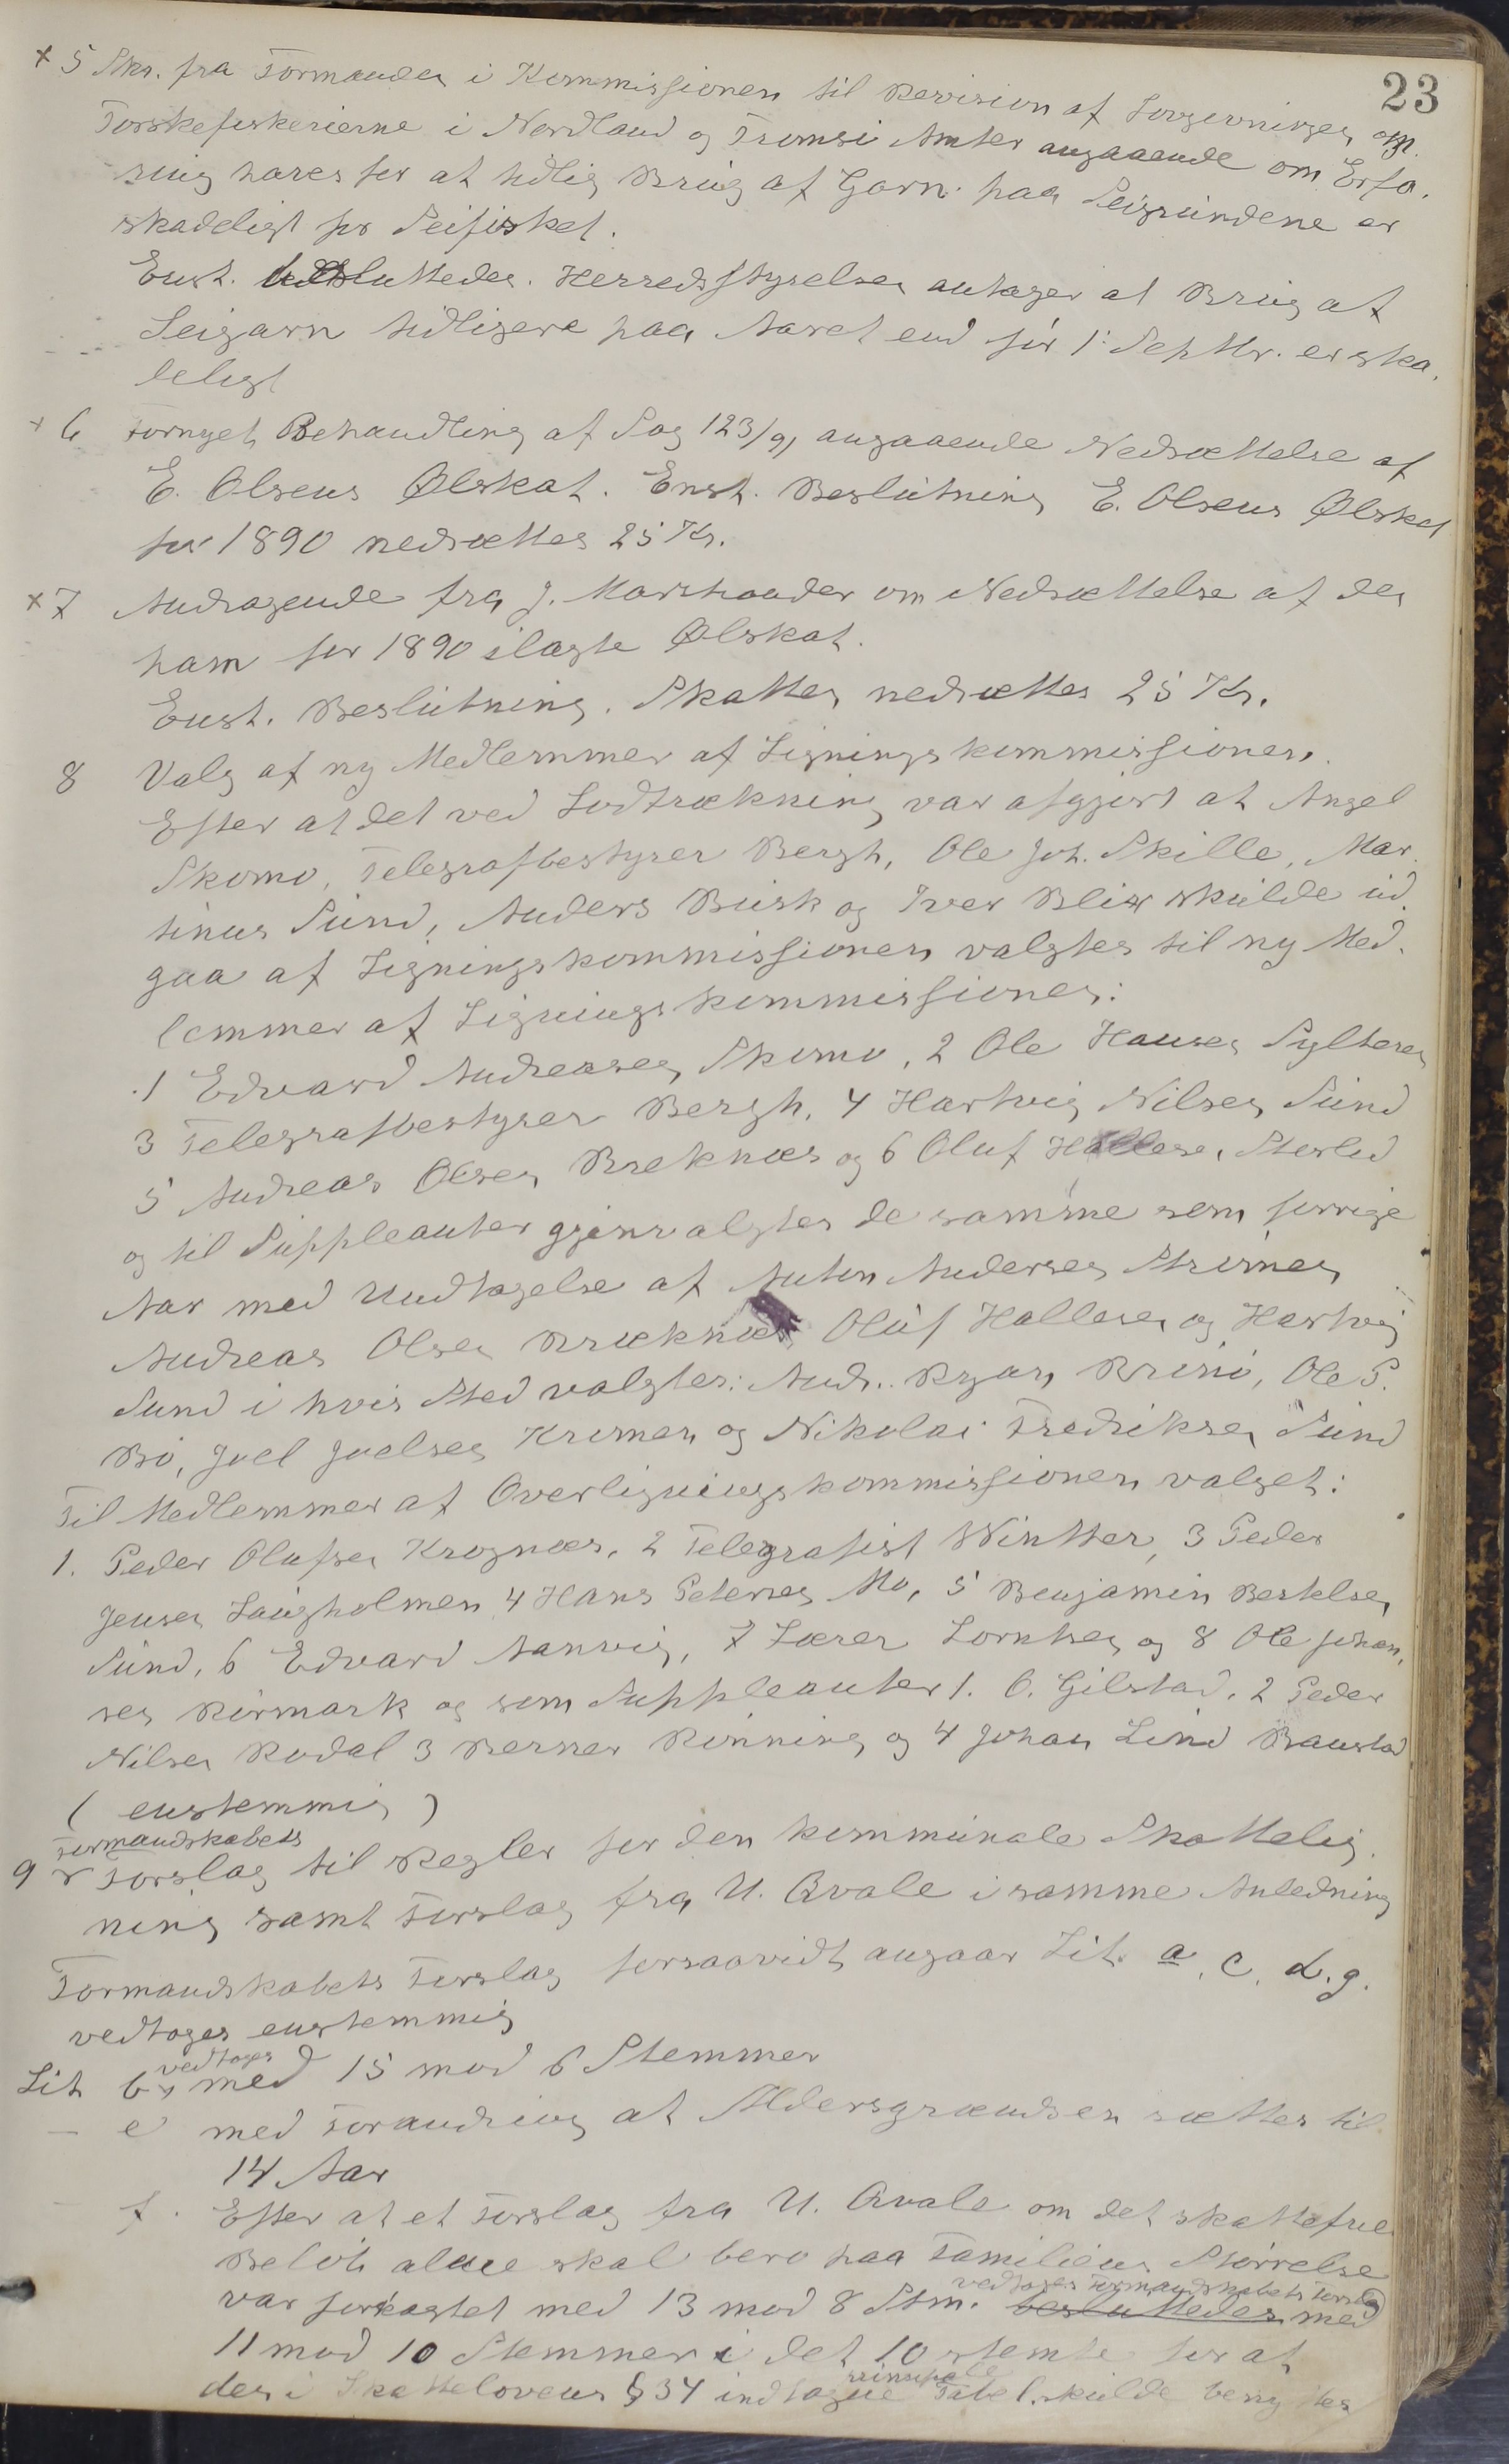 23
× 5 Skr. fra Formanden i Kommissionen til Revision af Lovgivningen om
Torskefiskerierne i Nordland og Tromsø Amter angaaende om Erfa-
ring haves for at tidlig Brug af Garn paa Seigrundene er
skadeligt for Seifisket.
Enst. besluttedes. Herredsstyrelsen antager at Brug af
Seigarn tidligere paa Aaret end før 1ste Septbr. er ska-
deligt
× 6 Fornyet Behandling af Sag 123/91 angaaende Nedsættelse af
E. Olsens Ølskat. Enst. Beslutning E. Olsens Ølskat
for 1890 nedsættes 25 Kr.
× 7 Andragende fra J. Marhaader om Nedsættelse af den
ham for 1890 ilagte Ølskat.
Enst. Beslutning. Skatten nedsættes 25 Kr.
8 Valg af ny Medlemmer af Ligningskommissionen.
Efter at det ved Lodtrækning var afgjort at Angel
Skomo, Telegrafbestyrer Bergh, Ole Joh. Skille, Mar-
tinus Sund, Anders Busk og Iver Blix skulde ud-
gaa af Ligningskommissionen valgtes til ny Med-
lemmer af Ligningskommissionen:
1 Edvard Andreasen Skomo, 2 Ole Hansen Sylteren
3 Telegrafbestyrer Bergh, 4 Hartvig Nilsen Sund
5 Andreas Olsen Breknæs og 6 Oluf Hallesen Sterlid
og til Suppleanter gjenvalgtes de samme som forrige
Aar med Undtagelse af Anton Andersen Strømen
Andreas Olsen Bræknæs Oluf Hallesen og Hartvig
Sund i hvis Sted valgtes: Andr. Ryan Brenø, Ole P.
Bø, Joel Joelsen Kromen og Nikolai Fredriksen Sund
Til Medlemmer af Overligningskommissionen valget:
1. Peder Olufsen Krognæs, 2 Telegrafist Winther, 3 Peder
Jensen Langholmen 4 Hans Petersen Mo, 5 Benjamin Bertelsen
Sund, 6 Edvard Aanvig, 7 Lærer Lorntsen og 8 Ole Johan-
sen Rørmark og som Suppleanter 1. O. Gilstad, 2 Peder
Nilsen Rodal 3 Berner Rønning og 4 Johan Lind Baustad
(enstemmig)
Formandskabets
9 Forslag til Regler for den kommunale Skattelig-
ning samt Forslag fra U. Qvale i samme Anledning
Formandskabets Forslag forsaavidt angaar Lit. a, c, d. g.
vedtoges enstemmig
Lit b vedtoges med 15 mod 6 Stemmer
— e med Forandring at Aldersgrændsen sættes til
14 Aar
— f. Efter at et Forslag fra U. Qvale om det skattefrie
Beløb alene skal bero paa Familiens Størrelse
var forkastet med 13 mod 8 Stm. vedtoges Formandskabets Forslag
besluttedes med
11 mod 10 Stemmer i det 10 stemte for at
den i Skattelovens § 34 indtagne prinsipale Tabel skulde benyttes